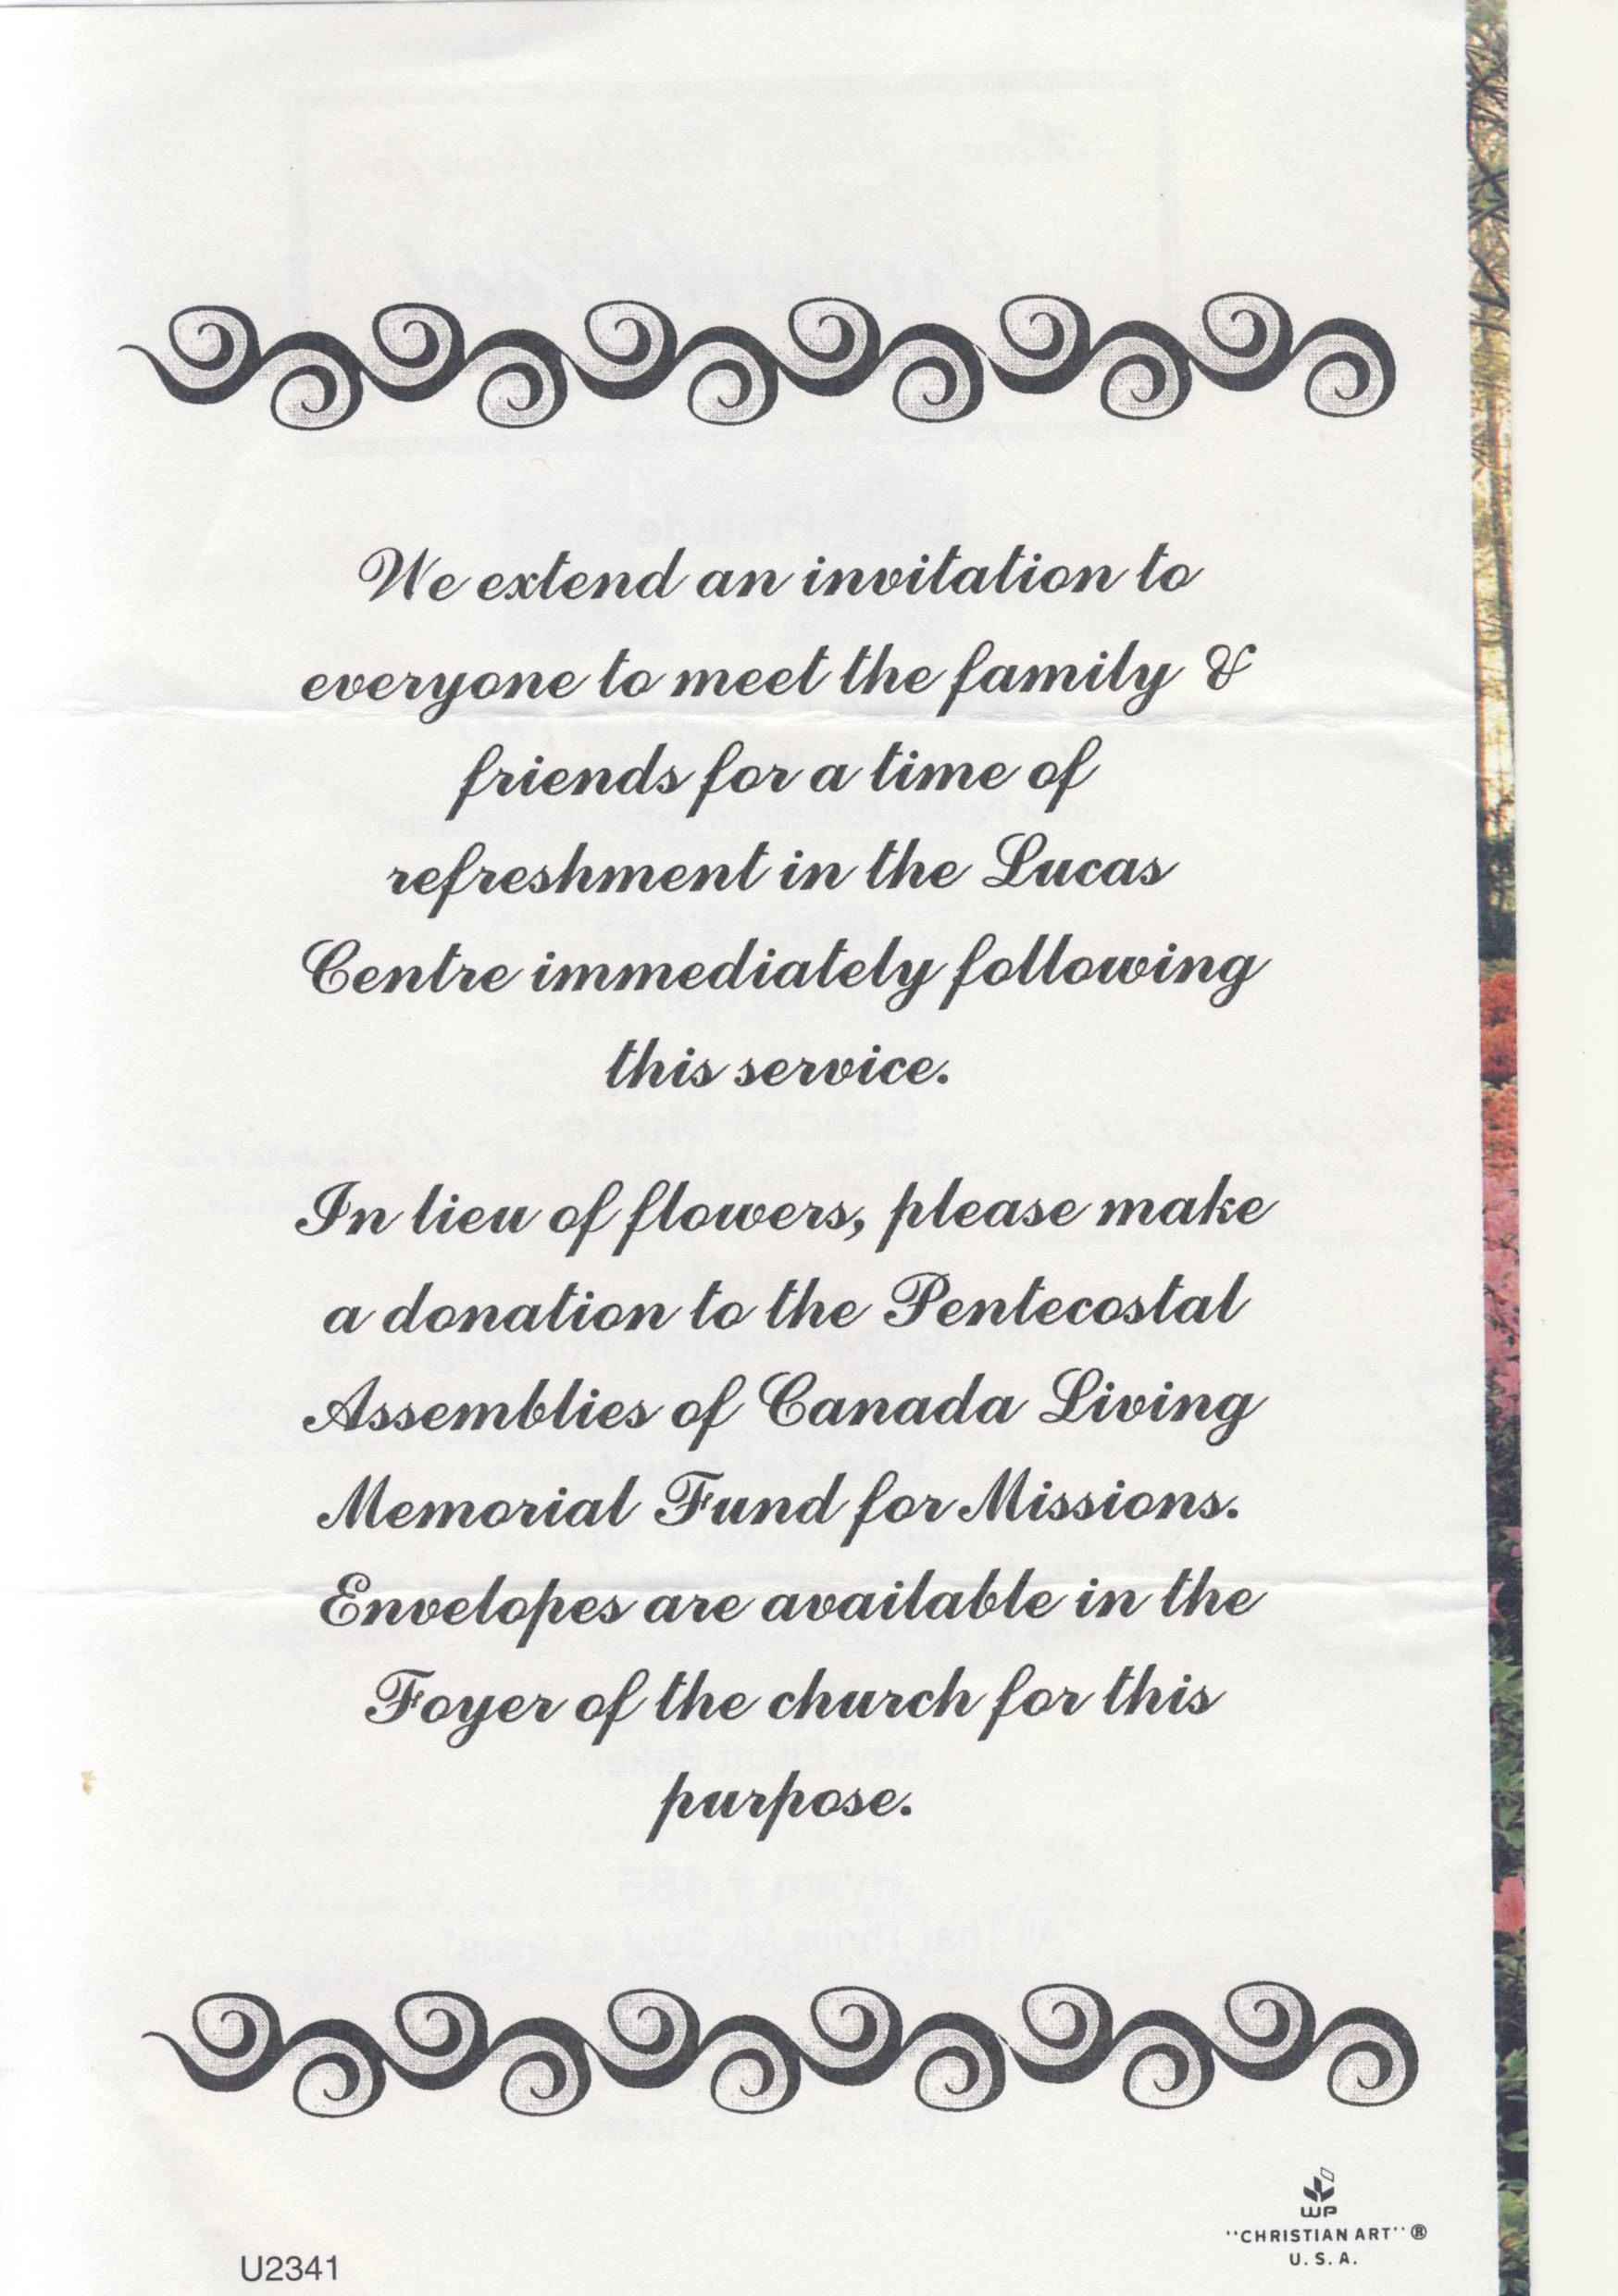 We extend an invitation to
everyone to meet the family &
friends for a time of
refreshment in the Lucas
Centre immediately following
this service.
In lieu of flowers, please make
a donation to the Pentecostal
Assemblies of Canada Living
Memorial Fund for Missions.
Envelopes are available in the
Foyer of the church for this
purpose.
WP
"CHRISTIAN ART" ®
U.S.A.
U2341